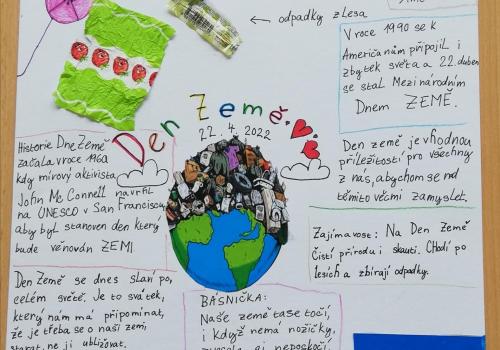 ← odpadky z lesa
V roce 1990 se k
Američanům připojil i
zbytek světa a 22.duben
se stal Mezinárodním
Dnem ZEMĚ.
Den Země
22. 4. 2022
Historie Dne Země
začala v roce 1969
kdy mírový aktivista
John Mc Connell navrhl
na UNESCO v San Franciscu,
aby byl stanoven den který
bude věnován ZEMI.
Den země je vhodnou
příležitostí pro všechny
z nás, abychom se nad
těmito věcmi zamyslet.
Zajímavost: Na Den Země
čistí přírodu i skauti. Chodí po
lesích a zbírají odpadky.
Den Země se dnes slaví po
celém světě. Je to svátek,
který nám má připomínat,
že je třeba se o naši zemi
starat, ne ji ubližovat.
BÁSNIČKA:
Naše země ta se točí,
i když nemá nožičky,